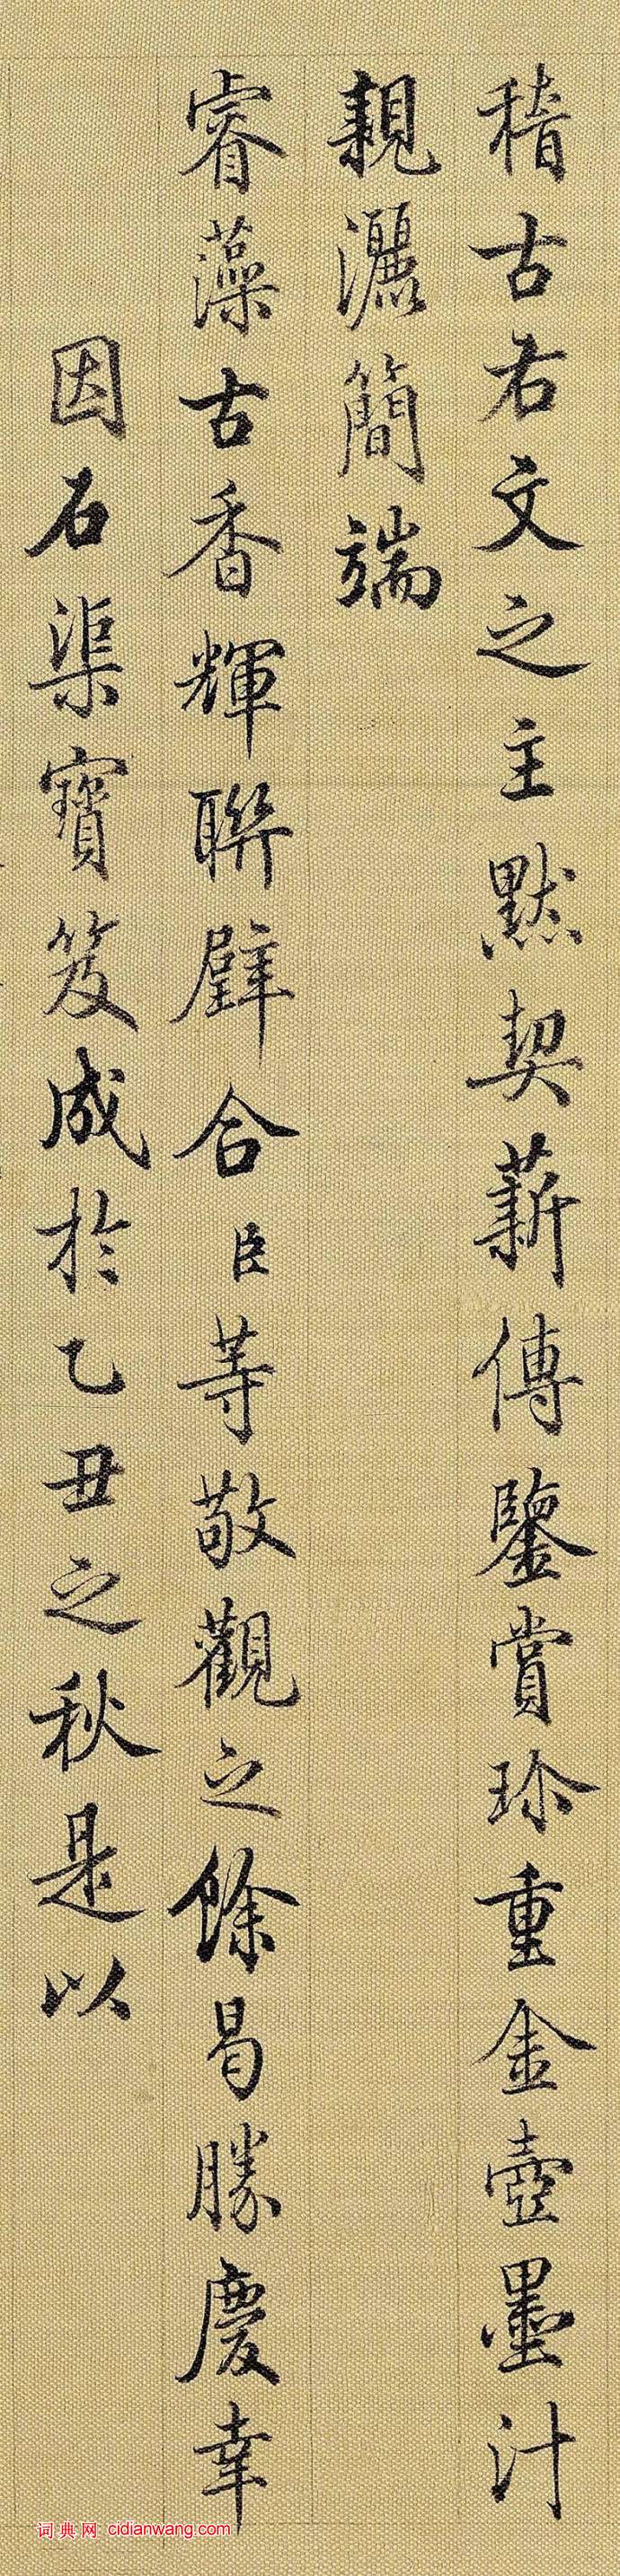 稽古右文之主默契薪傳鑒賞珍重金壺墨汁
親灑簡端
睿藻古香輝聯璧合臣等敬觀之餘曷勝慶幸
因石渠寶笈成於乙丑之秋是以
词典网 cidianwang.com